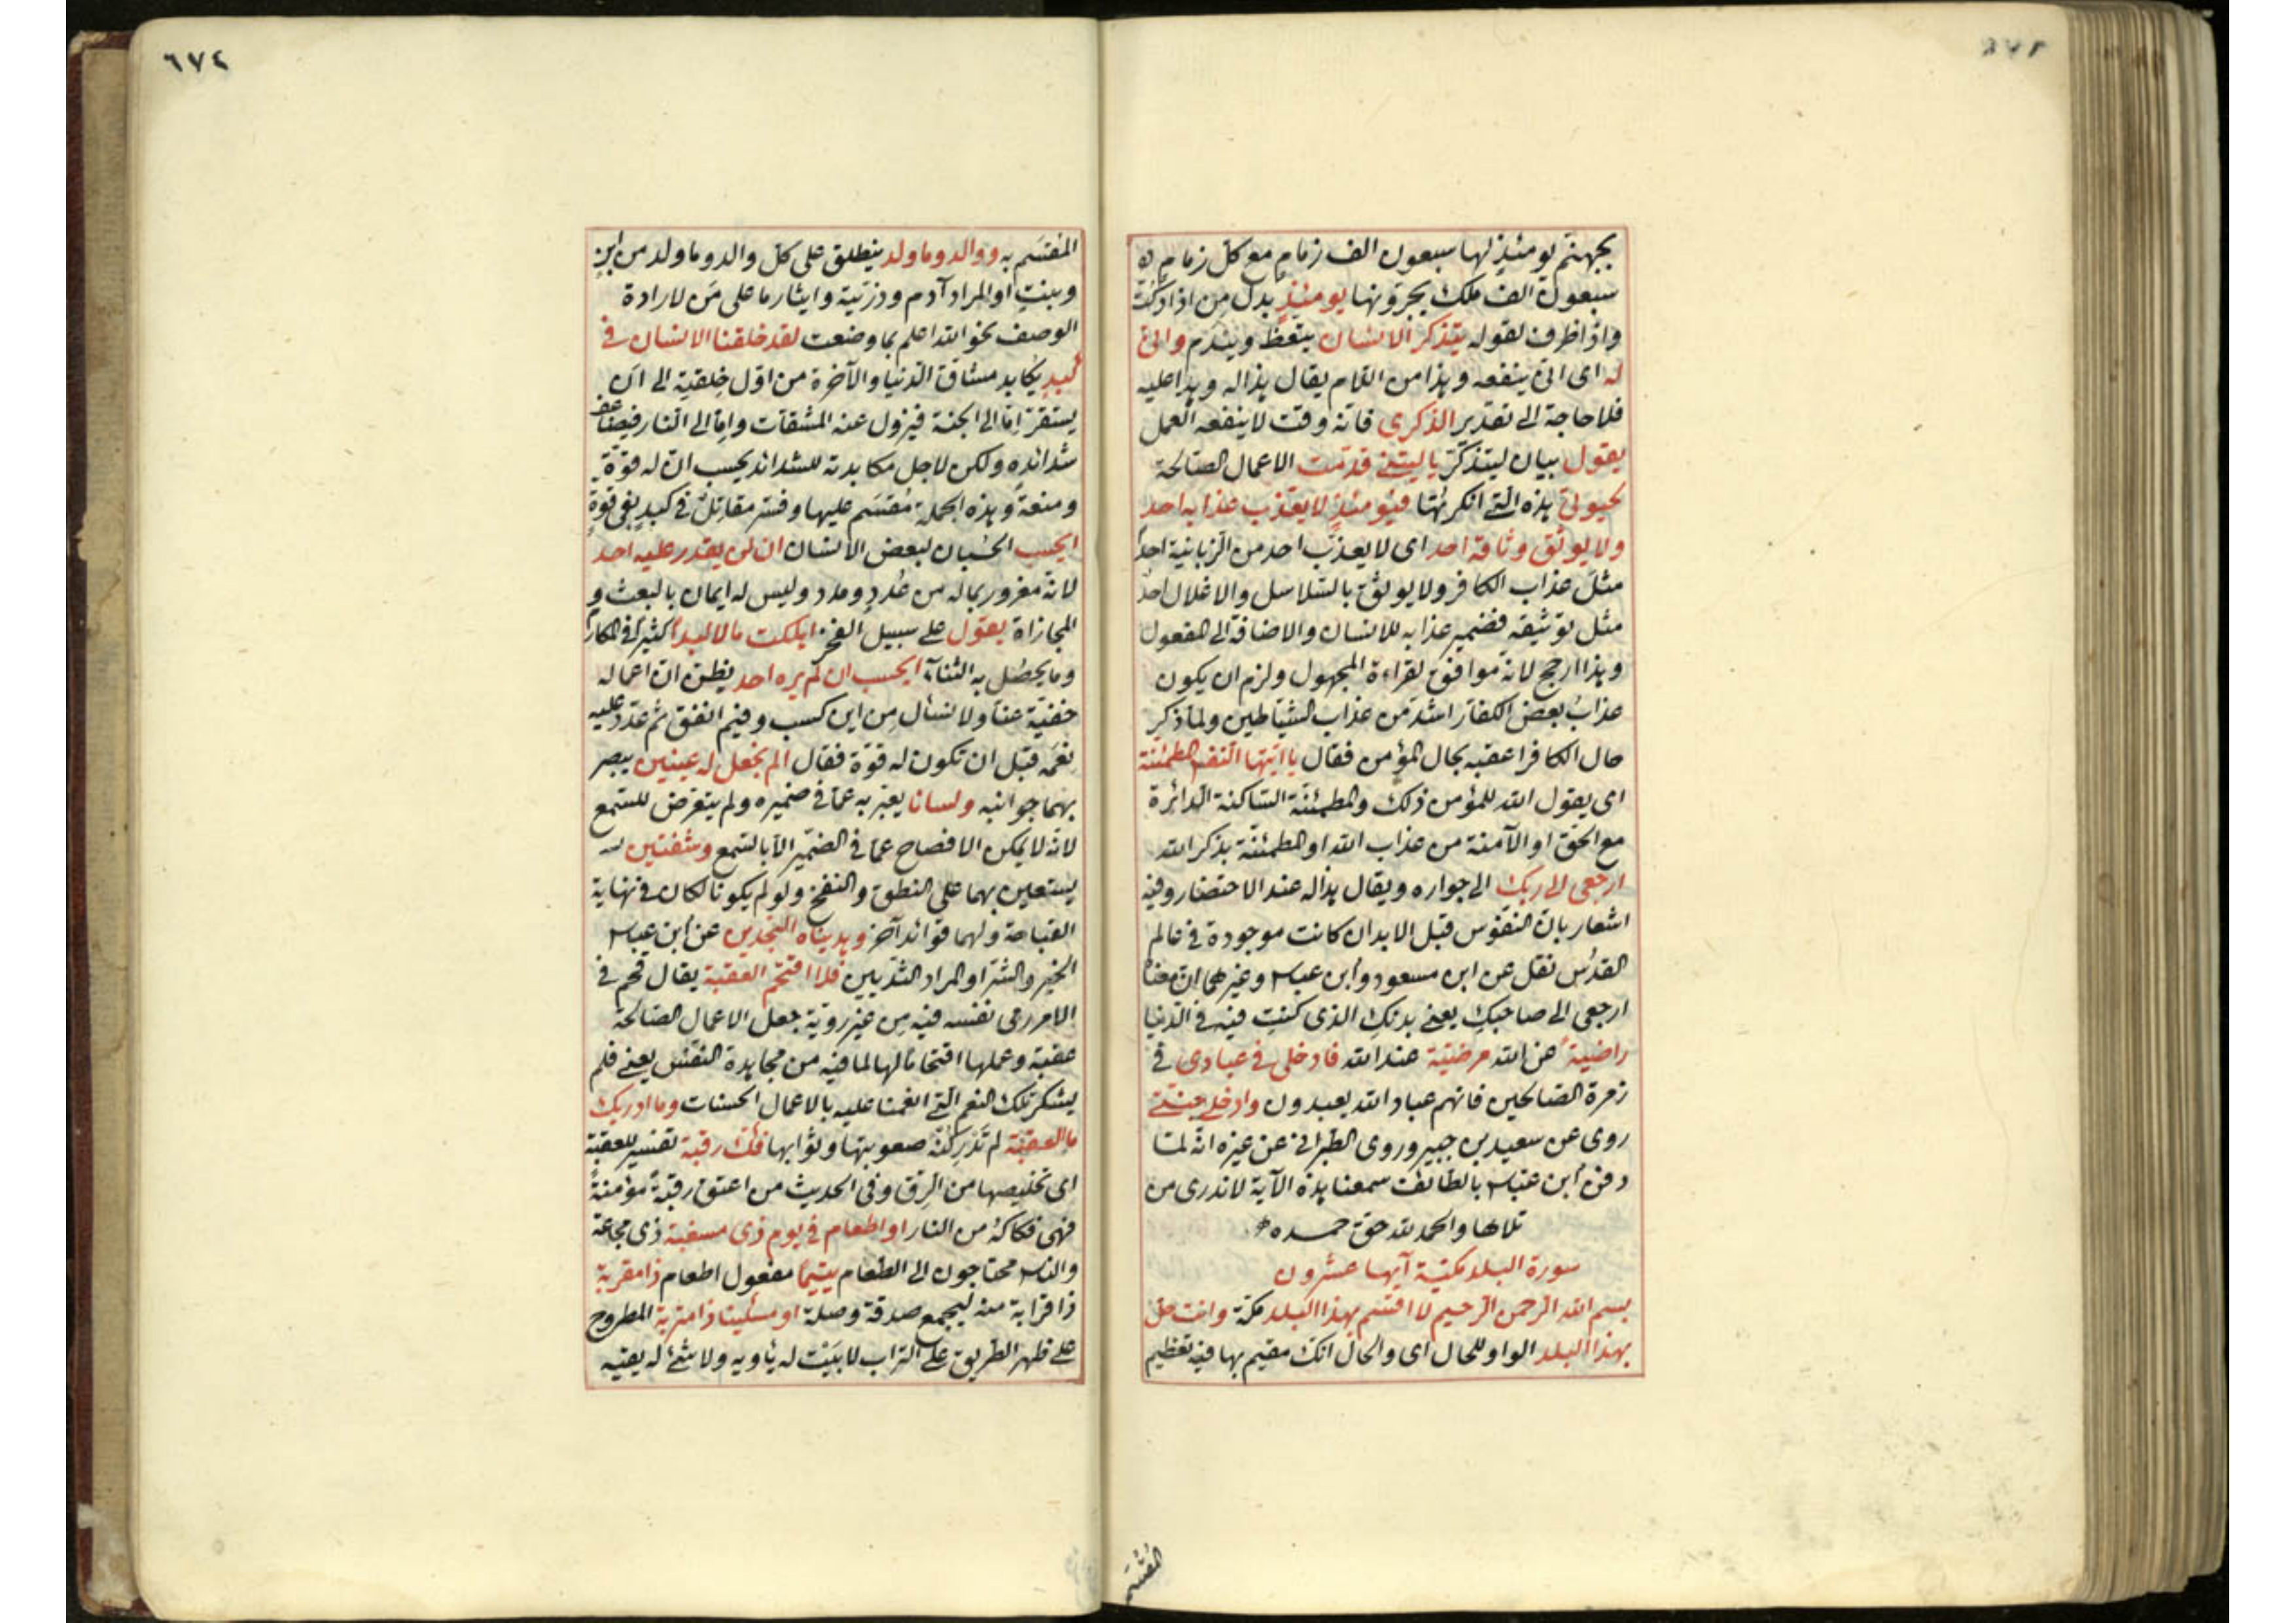 بجهنم يومئذ لها سبعون الف زمام مع كل زمام
سبعون الف ملك يجرونها يومئذ بدل من اذا دكت
واذا ظرف لقوله يتذكر الانسان يتعظ ويندم وانى
له اى انى ينفعه وهذا من اللام يقال هذا له وهذا عليه
فلا حاجة الى تقدير الذكرى فانه وقت لا ينفعه العمل
يقول بيان ليتذكر يا ليتنى قدمت الاعمال الصالحة
لحيوتى هذه التى انكرتها فيومئذ لا يعذب عذابه احد
ولا يوثق وثاقه احد اى لا يعذب احد من الزبانية احدا
مثل عذاب الكافر ولا يوثق بالسلاسل والاغلال احد
مثل توثيقه فضمير عذابه للانسان والاضافة الى المفعول
وهذا ارجح لانه موافق لقراءة المجهول ولزم ان يكون
عذاب بعض الكفار اشد من عذاب الشياطين ولما ذكر
حال الكافر اعقبه بحال المؤمن فقال يا ايتها النفس المطمئنة
اى يقول الله للمؤمن ذلك والمطمئنة الساكنة الدائرة
مع الحق او الآمنة من عذاب الله او المطمئنة بذكر الله
ارجعى الى ربك الى جواره ويقال هذا له عند الاحتضار وفيه
اشعار بان النفوس قبل الابدان كانت موجودة فى عالم
القدس نقل عن ابن مسعود وابن عباس وغيرهما ان معناه
ارجعى الى صاحبك يعنى بدنك الذى كنت فيه فى الدنيا
راضية عن الله مرضية عند الله فادخلى فى عبادى فى
زمرة الصالحين فانهم عباد الله يعبدون وادخلى جنتى
روى عن سعيد بن جبير وروى الطبرانى عن غيره انه لما
دفن ابن عباس بالطائف سمعنا هذه الآية لا ندرى من
تلاها والحمد لله حق حمده
سورة البلد مكية آيها عشرون
بسم الله الرحمن الرحيم لا اقسم بهذا البلد مكة وانت حل
بهذا البلد الواو للحال اى والحال انك مقيم بها فيه تعظيم
المقسم
٦٧٤
المقسم به ووالد وما ولد ينطلق على كل والد وما ولد من ابن
وبنت او المراد آدم وذريته وايثار ما على من لارادة
الوصف نحو الله اعلم بما وضعت لقد خلقنا الانسان فى
كبد يكابد مشاق الدنيا والآخرة من اول خلقته الى ان
يستقر اما الى الجنة فيزول عنه المشقات واما الى النار فيضاعف
شدائده ولكن لاجل مكابدته للشدائد يحسب ان له قوة
ومنعة وهذه الجملة مقسم عليها وفسر مقاتل فى كبد بفى قوة
ايحسب الحسبان لبعض الانسان ان لن يقدر عليه احد
لانه مغرور بماله من عدد ومدد وليس له ايمان بالبعث و
المجازاة يقول على سبيل الفخر اهلكت مالا لبدا كثيرا فى المكارم
وما يحصل به الثناء ايحسب ان لم يره احد يظن ان اعماله
خفية عنا ولا نسأل من اين كسب وفيم انفق ثم عدد عليه
نعمه قبل ان تكون له قوة فقال الم نجعل له عينين يبصر
بهما جوانبه ولسانا يعبر به عما فى ضميره ولم يتعرض للسمع
لانه لا يمكن الافصاح عما فى الضمير الا بالسمع وشفتين
يستعين بهما على النطق والنفخ ولو لم يكونا لكان فى نهاية
القباحة ولهما فوائد آخر وهديناه النجدين عن ابن عباس
الخير والشر او المراد الثديين فلا اقتحم العقبة يقال قحم فى
الامر رمى نفسه فيه من غير روية جعل الاعمال الصالحة
عقبة وعملها اقتحاما لها لما فيه من مجاهدة النفس يعنى فلم
يشكر تلك النعم التى انعمنا عليه بالاعمال الحسنات وما ادريك
ما العقبة لم تدر كنه صعوبتها وثوابها فك رقبة تفسير للعقبة
اى تخليصها من الرق وفى الحديث من اعتق رقبة مؤمنة
فهى فكاكه من النار او اطعام فى يوم ذى مسغبة ذى مجاعة
والناس محتاجون الى الطعام يتيما مفعول اطعام ذا مقربة
ذا قرابة منه ليجمع صدقة وصلة او مسكينا ذا متربة المطروح
على ظهر الطريق على التراب لا بيت له يأويه ولا شئ له يقيه